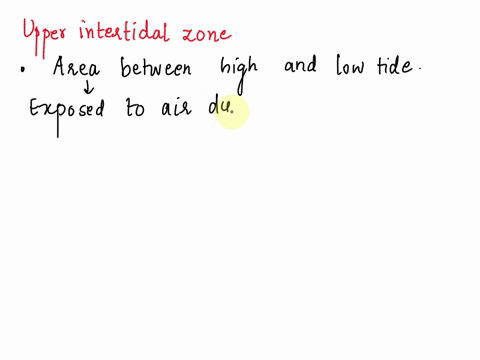 Upper intertidal zone
• Area between high and low tide.
↓
Exposed to air du